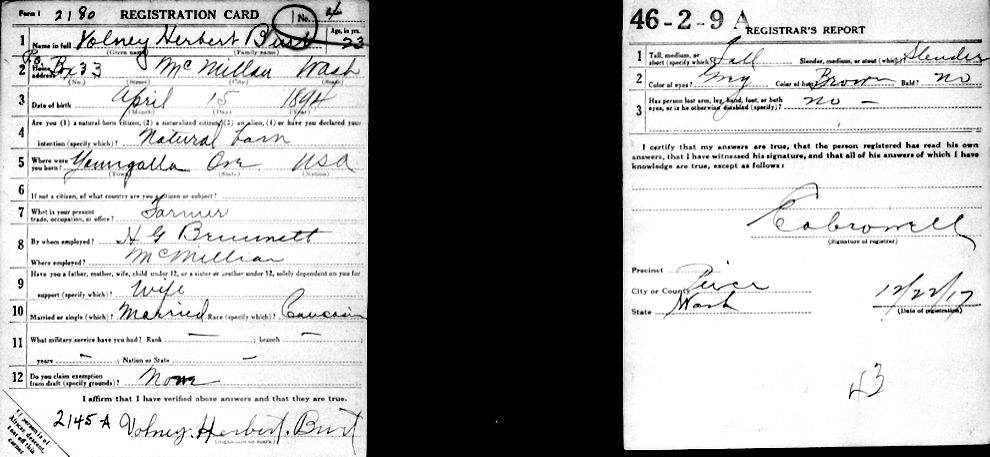 Form 1 2180 REGISTRATION CARD No. 4
1 Name in full Volney Herbert Burt Age, in yrs. 23
(Given name) (Family name)
2 Home address P.O. Box 33 McMillan Wash
(No.) (Street) (City) (State)
3 Date of birth April 15 1894
(Month) (Day) (Year)
4 Are you (1) a natural-born citizen, (2) a naturalized citizen, (3) an alien, (4) or have you declared your
intention (specify which)? Natural born
5 Where were you born? Youngalla Ore USA
(Town) (State) (Nation)
6 If not a citizen, of what country are you a citizen or subject?
7 What is your present trade, occupation, or office? Farmer
8 By whom employed? H G Brumnett
Where employed? McMillian
9 Have you a father, mother, wife, child under 12, or a sister or brother under 12, solely dependent on you for
support (specify which)? Wife
10 Married or single (which)? Married Race (specify which)? Caucasin
11 What military service have you had? Rank — ; branch —
years — ; Nation or State —
12 Do you claim exemption from draft (specify grounds)? None
I affirm that I have verified above answers and that they are true.
2145 A Volney Herbert Burt
(Signature or mark)
If person is of
African descent,
tear off this
corner
46-2-9 A
REGISTRAR'S REPORT
1 Tall, medium, or short (specify which)? Tall Slender, medium, or stout (which)? Slender
2 Color of eyes? Grey Color of hair? Brown Bald? No
3 Has person lost arm, leg, hand, foot, or both eyes, or is he otherwise disabled (specify)? No —
I certify that my answers are true, that the person registered has read his own
answers, that I have witnessed his signature, and that all of his answers of which I have
knowledge are true, except as follows:
(Signature of registrar)
Precinct
City or County Pierce
State Wash
12/22/17
(Date of registration)
53